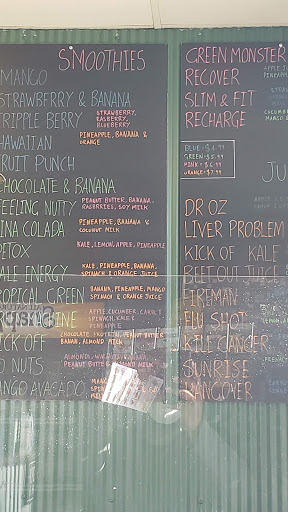 SMOOTHIES
MANGO
STRAWBERRY & BANANA
TRIPPLE BERRY STRAWBERRY,
RASBERRY,
BLUEBERRY
HAWAIIAN PINEAPPLE, BANANA &
ORANGE
FRUIT PUNCH
CHOCOLATE & BANANA
FEELING NUTTY PEANUT BUTTER, BANANA,
RASBRRIES, SOY MILK
PINA COLADA PINEAPPLE, BANANA &
COCONUT MILK
DETOX KALE, LEMON, APPLE, PINEAPPLE
KALE ENERGY KALE, PINEAPPLE, BANANA,
SPINACH & ORANGE JUICE
TROPICAL GREEN BANANA, PINEAPPLE, MANGO
SPINACH & ORANGE JUICE
APPLE, CUCUMBER, CAROT
SPINACH, KALE &
PINEAPPLE
KICK OFF CHOCOLATE, PROTEIN, PEANUT BUTTER
BANAN, ALMOND MILK
NUTS ALMONDS,
PEANUT BUTTER & ALMOND MILK
MANGO AVACADO
GREEN MONSTER
RECOVER
SLIM & FIT
RECHARGE
BLUE $4.99
GREEN $5.99
PINK $6.99
ORANGE $7.99
JU
DR OZ
LIVER PROBLEM
KICK OF KALE
BEET OUT JUICE
FIREMAN
FLU SHOT
KILL CANCER
SUNRISE
HANGOVER